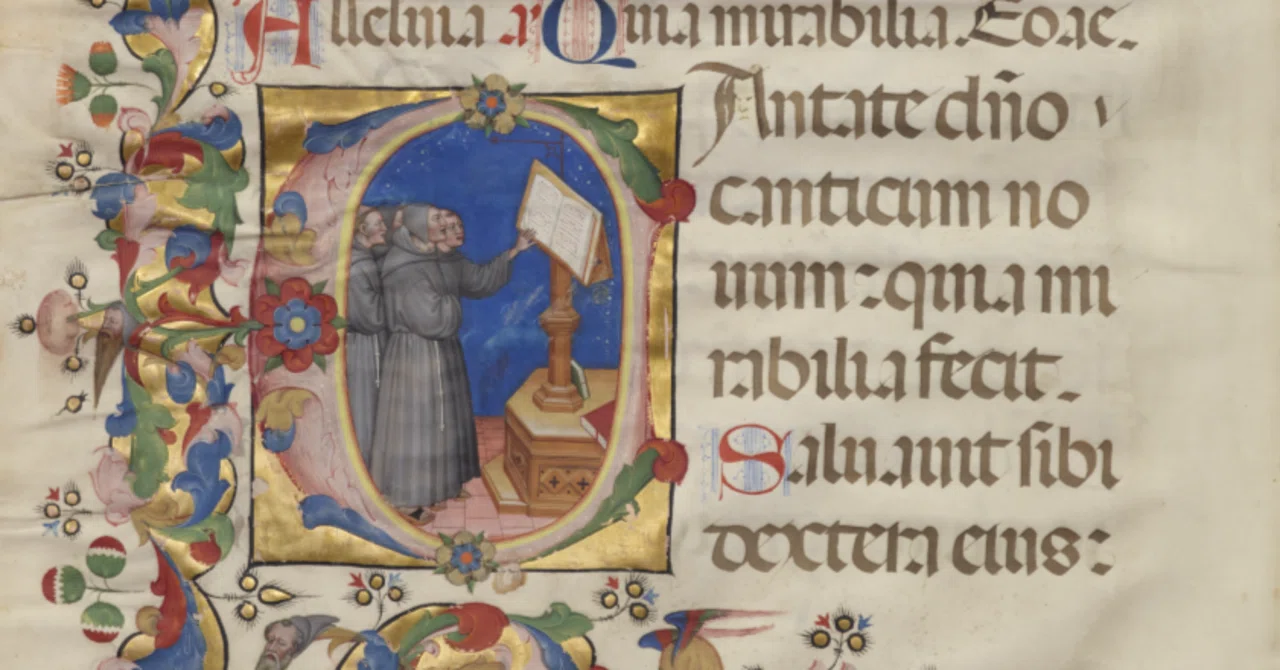 Alleluia Quia mirabilia. Eoae.
CAntate dño
canticum no
uum: quia mi
rabilia fecit.
Saluauit sibi
dextera eius: